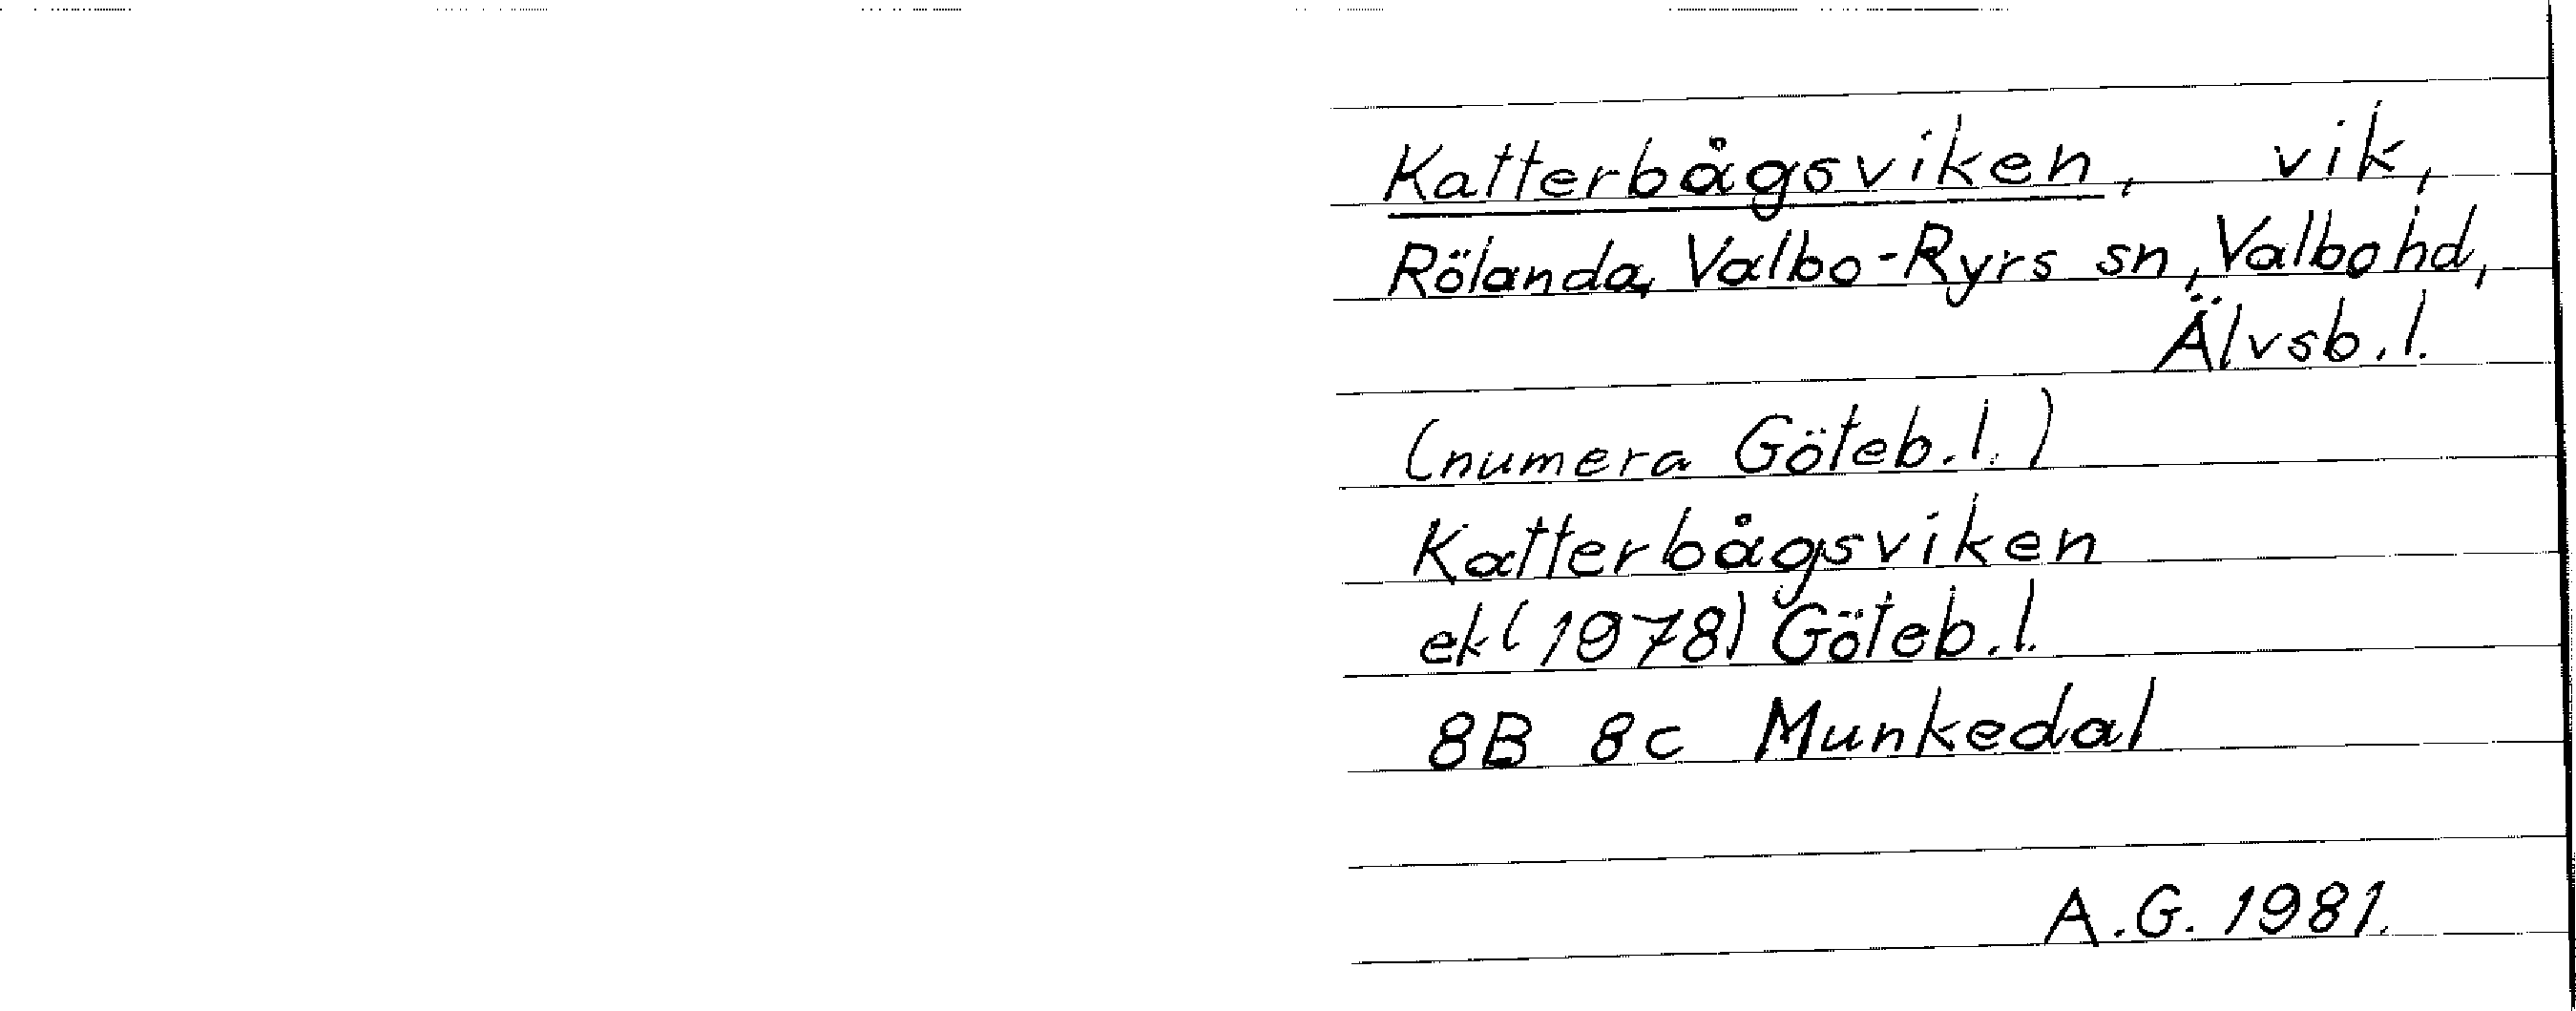 Katterbågsviken, vik,
Rölanda, Valbo-Ryrs sn, Valbo hd,
Älvsb.l.
(numera Göteb.l.)
Katterbågsviken
ek (1978) Göteb.l.
8B 8c Munkedal
A.G. 1981.